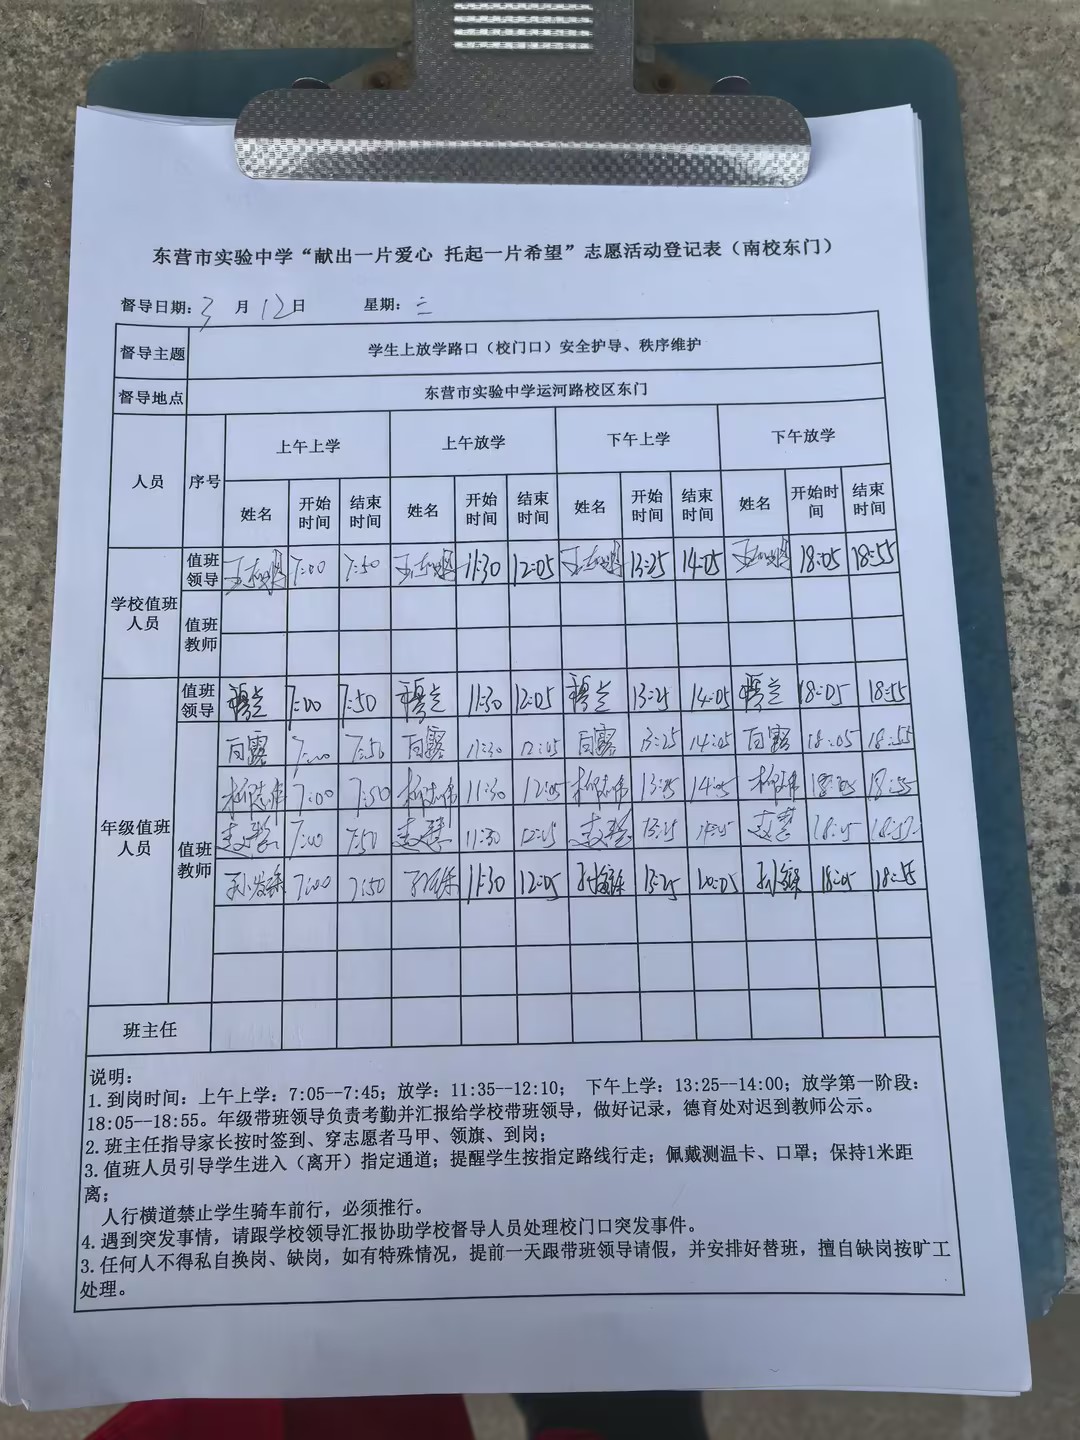 东营市实验中学“献出一片爱心 托起一片希望”志愿活动登记表（南校东门）
督导日期：3 月 12日 星期：三
督导主题 学生上放学路口（校门口）安全护导、秩序维护
督导地点 东营市实验中学运河路校区东门
人员 序号 上午上学 上午放学 下午上学 下午放学
姓名 开始时间 结束时间 姓名 开始时间 结束时间 姓名 开始时间 结束时间 姓名 开始时间 结束时间
学校值班人员 值班领导 7:00 7:50 11:30 12:05 13:25 14:05 18:05 18:55
值班教师
年级值班人员 值班领导 7:00 7:50 11:30 12:05 13:25 14:05 18:05 18:55
值班教师 白露 7:00 7:50 白露 11:30 12:05 白露 13:25 14:05 白露 18:05 18:55
柳志伟 7:00 7:50 柳志伟 11:30 12:05 柳志伟 13:25 14:05 18:05 18:55
7:00 7:50 11:30 12:05 13:25 14:05 18:05
7:00 7:50 11:30 12:05 13:25 18:05 18:55
班主任
说明：
1.到岗时间：上午上学：7:05--7:45；放学：11:35--12:10； 下午上学：13:25--14:00；放学第一阶段：
18:05--18:55。年级带班领导负责考勤并汇报给学校带班领导，做好记录，德育处对迟到教师公示。
2.班主任指导家长按时签到、穿志愿者马甲、领旗、到岗；
3.值班人员引导学生进入（离开）指定通道；提醒学生按指定路线行走；佩戴测温卡、口罩；保持1米距
离；
人行横道禁止学生骑车前行，必须推行。
4.遇到突发事情，请跟学校领导汇报协助学校督导人员处理校门口突发事件。
3.任何人不得私自换岗、缺岗，如有特殊情况，提前一天跟带班领导请假，并安排好替班，擅自缺岗按旷工
处理。